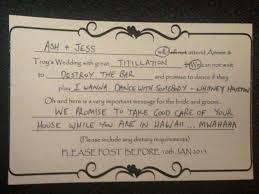 ASH + JESS
will/will not attend Aimee &
Troy's Wedding with great TITILLATION
We can not wait
to DESTROY THE BAR and promise to dance if they
play I WANNA DANCE WITH SOMEBODY - WHITNEY HOUSTON
Oh and here is a very important message for the bride and groom..
WE PROMISE TO TAKE GOOD CARE OF YOUR
HOUSE WHILE YOU ARE IN HAWAII ... MWAHAHA
(Please include any dietary requirements)
PLEASE POST BEFORE 10th JAN